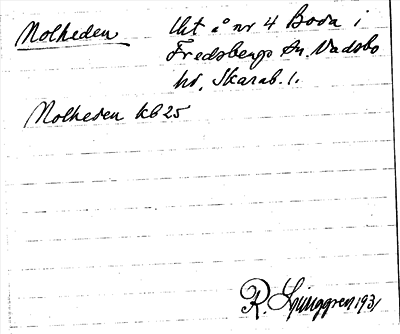 Nolheden
lht å nr 4 Boda i
Fredsbergs sn. Vadsbo
hd, Skarab. l.
Nolheden kb 25
R. Ljunggren 1931